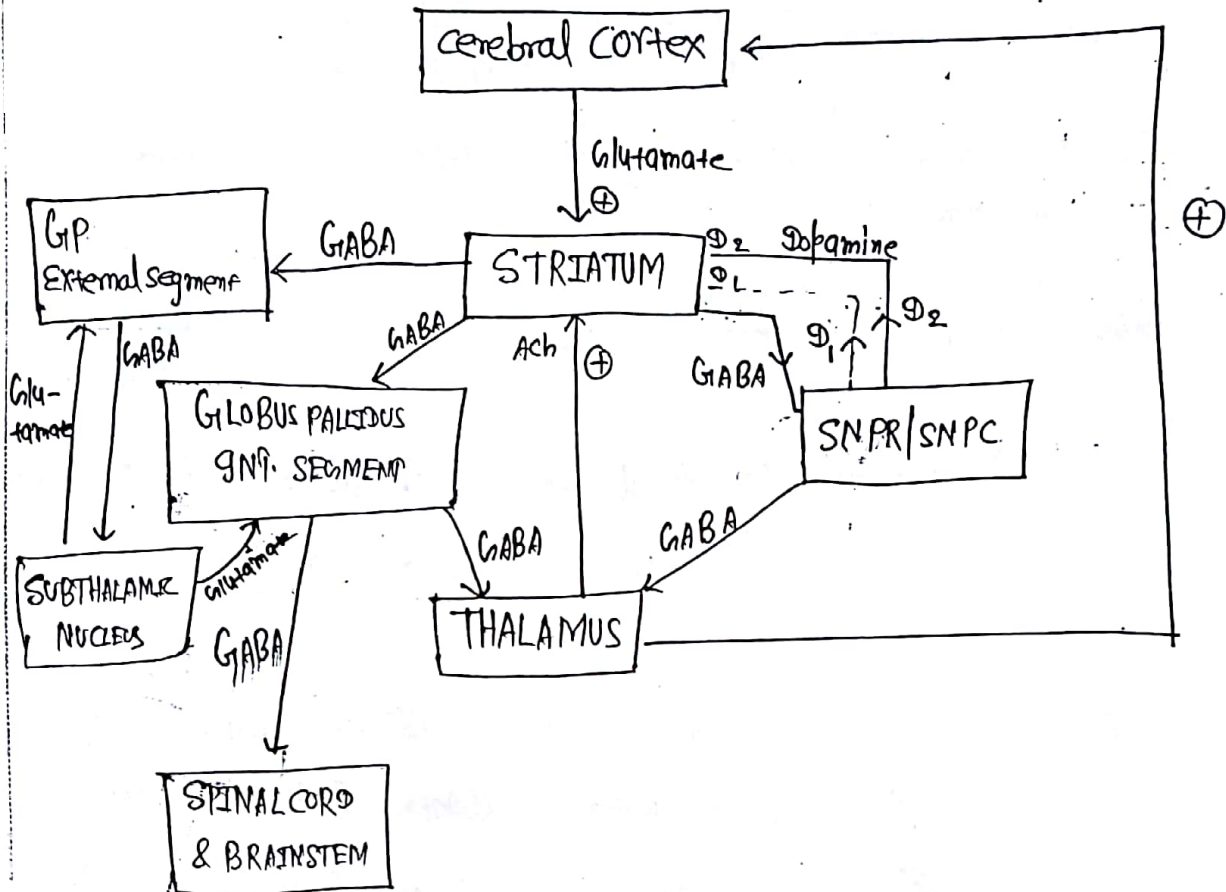 Cerebral Cortex
Glutamate
⊕
GP
External segment
GABA
STRIATUM
D2 Dopamine
D1
⊕
GABA
Ach
⊕
D1
D2
GABA
Glu-
tamate
GABA
GLOBUS PALLIDUS
INT. SEGMENT
SNPR/SNPC
GABA
GABA
SUBTHALAMIC
NUCLEUS
Glutamate
GABA
THALAMUS
SPINAL CORD
& BRAINSTEM